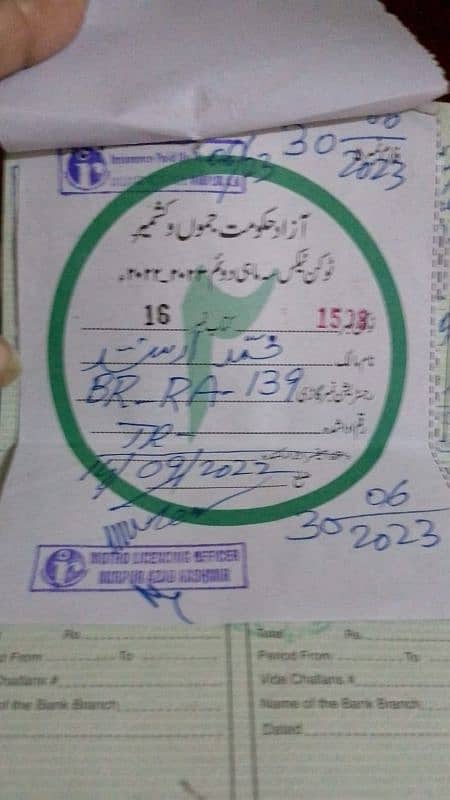 30 06
2023
آزاد حکومت جموں و کشمیر
ٹوکن ٹیکس سہ ماہی دوئم
16 کتاب نمبر
نام مالک محمد ارشد
رجسٹریشن نمبر گاڑی BR-RA-139
14/09/2022
30 06
2023
MOTRO LICENCING OFFICER
MIRPUR AZAD KASHMIR
Rs.
Total Rs.
From To
Period From To
Challans #
Vide Challans #
of the Bank Branch
Name of the Bank Branch
Dated